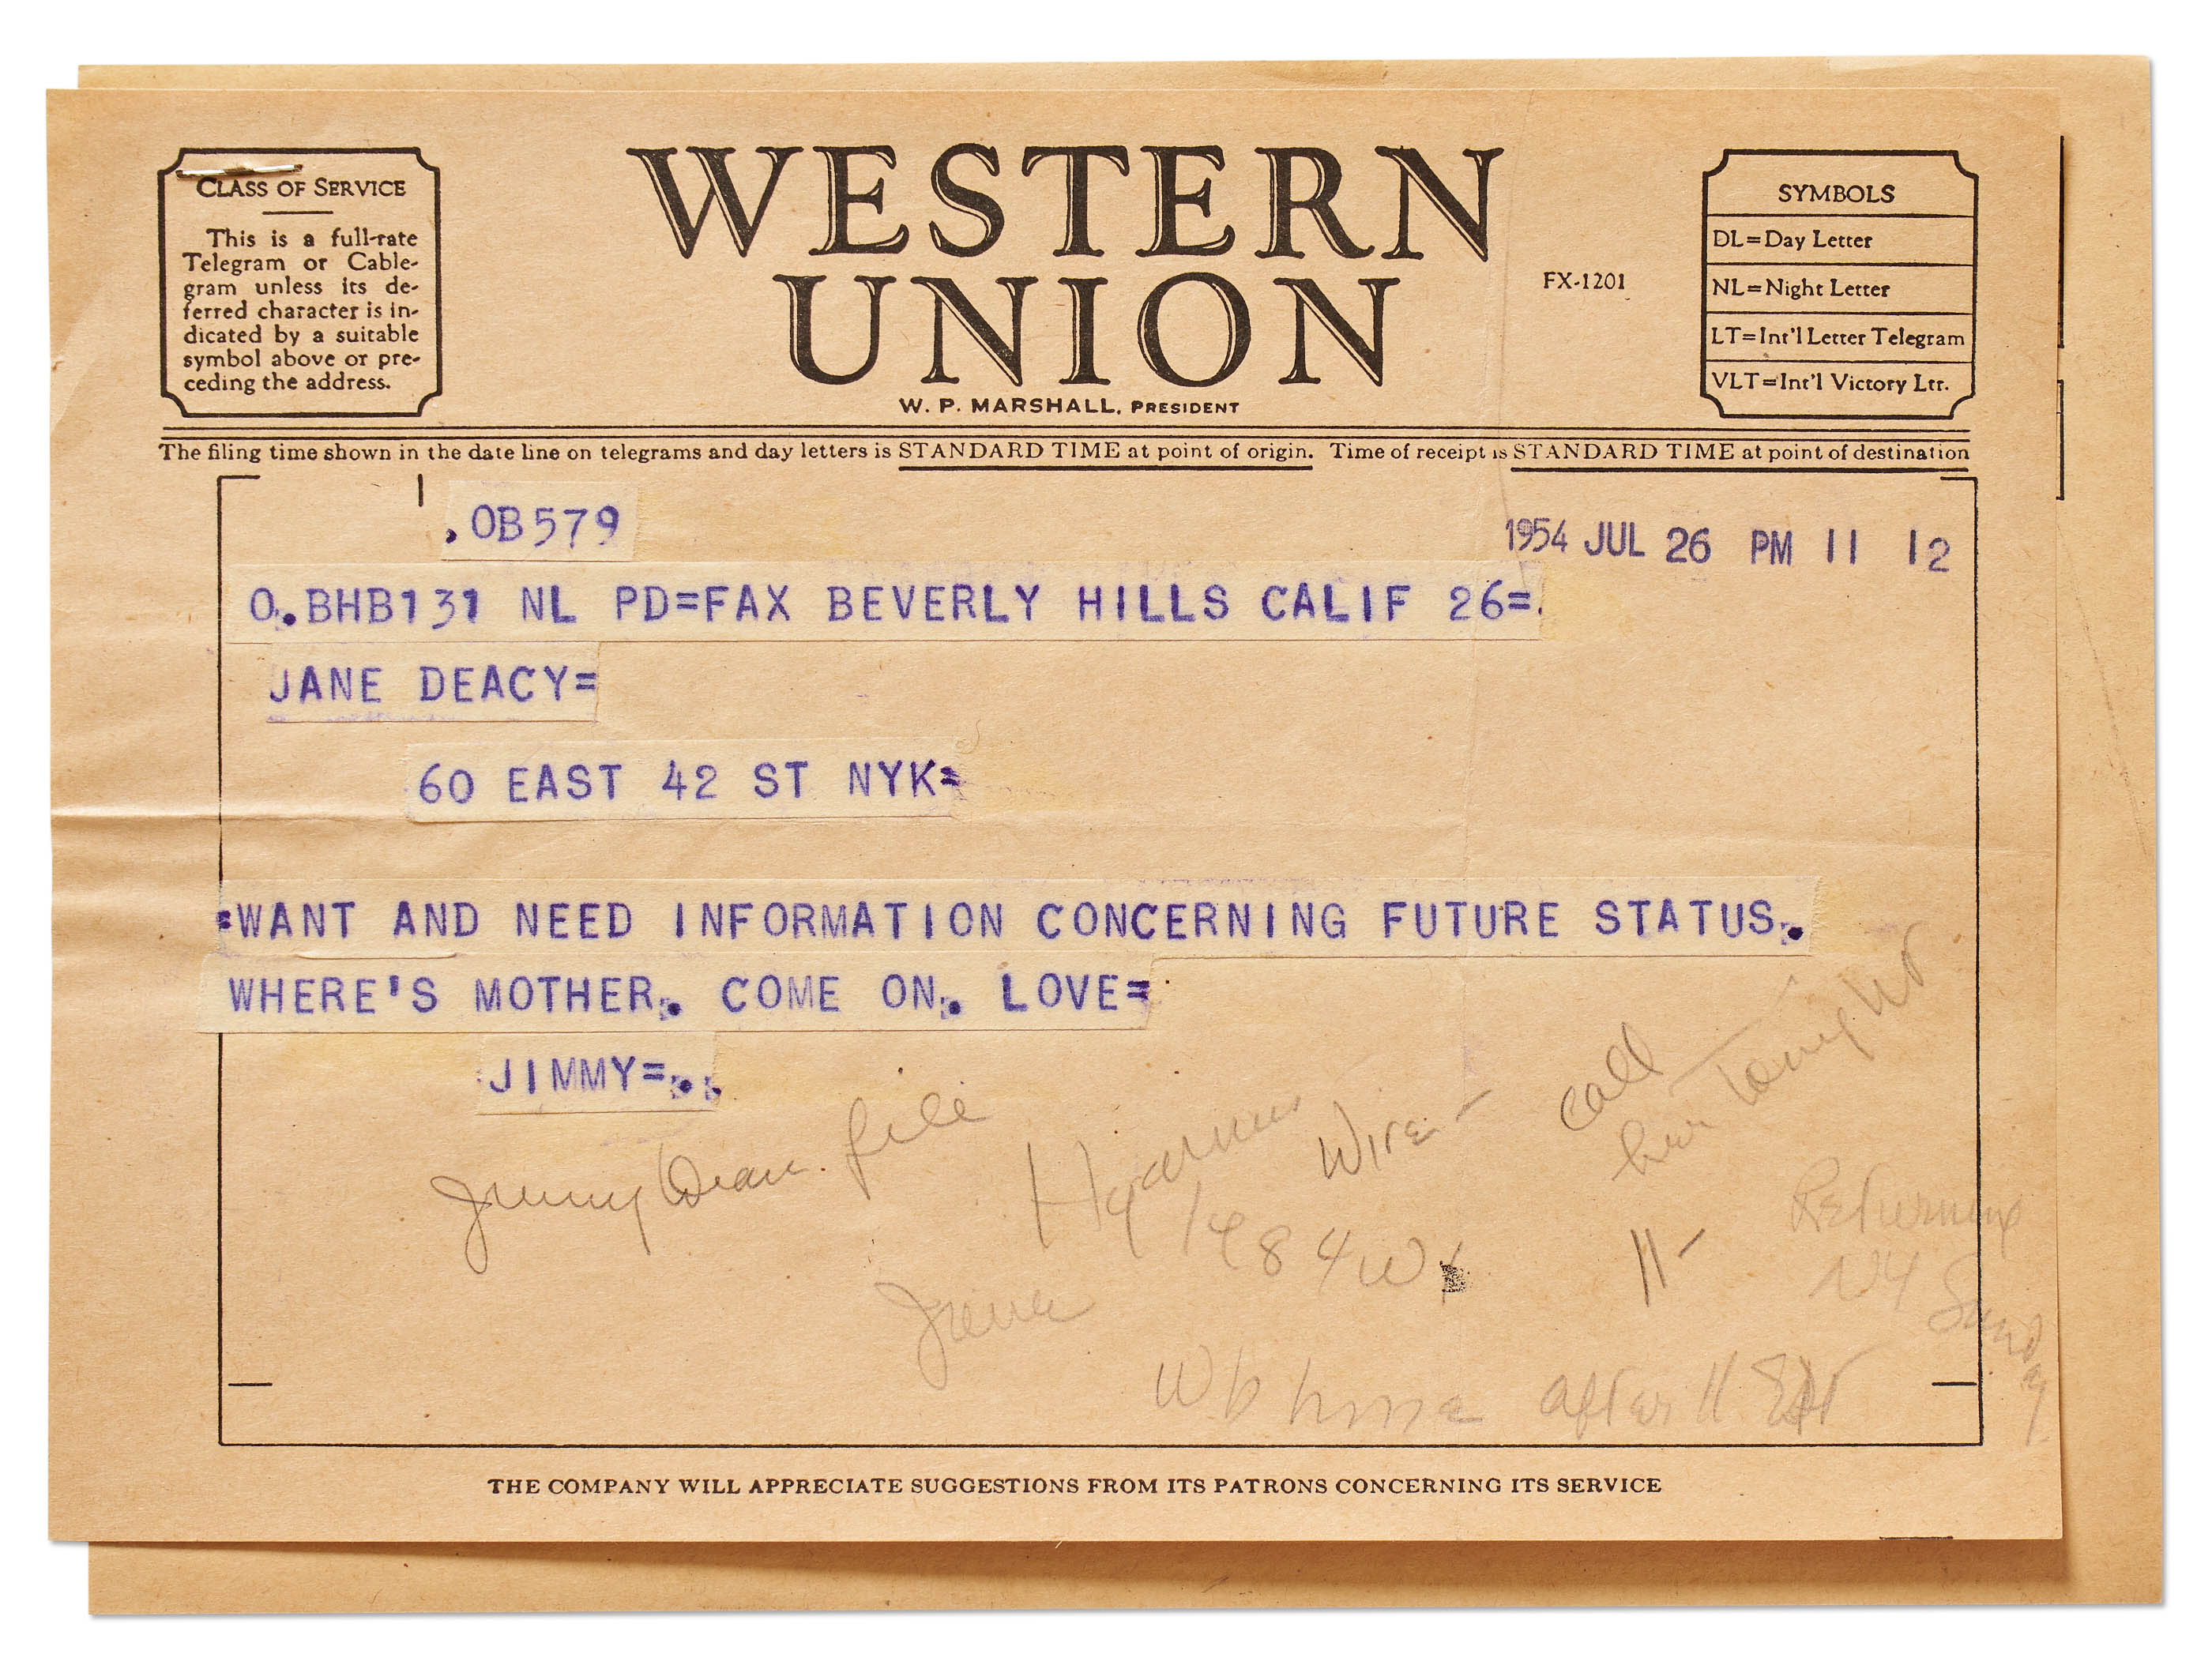 CLASS OF SERVICE
This is a full-rate
Telegram or Cable-
gram unless its de-
ferred character is in-
dicated by a suitable
symbol above or pre-
ceding the address.
WESTERN
UNION
W. P. MARSHALL, PRESIDENT
FX-1201
SYMBOLS
DL=Day Letter
NL=Night Letter
LT=Int'l Letter Telegram
VLT=Int'l Victory Ltr.
The filing time shown in the date line on telegrams and day letters is STANDARD TIME at point of origin. Time of receipt is STANDARD TIME at point of destination
.OB579
1954 JUL 26 PM 11 12
O.BHB131 NL PD=FAX BEVERLY HILLS CALIF 26=.
JANE DEACY=
60 EAST 42 ST NYK=
=WANT AND NEED INFORMATION CONCERNING FUTURE STATUS.
WHERE'S MOTHER. COME ON. LOVE=
JIMMY=..
Jimmy Dean file
Wire -
call
her Tonight
1484W
11-
Returning
NY Sunday
Jane
after 11
THE COMPANY WILL APPRECIATE SUGGESTIONS FROM ITS PATRONS CONCERNING ITS SERVICE